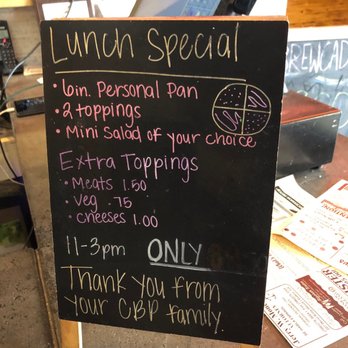 Lunch Special
• 6in. Personal Pan
• 2 toppings
• Mini Salad of your choice
Extra Toppings
• Meats 1.50
• Veg .75
• cheeses 1.00
11-3pm ONLY
Thank you from
your CBP family
BREWCAD